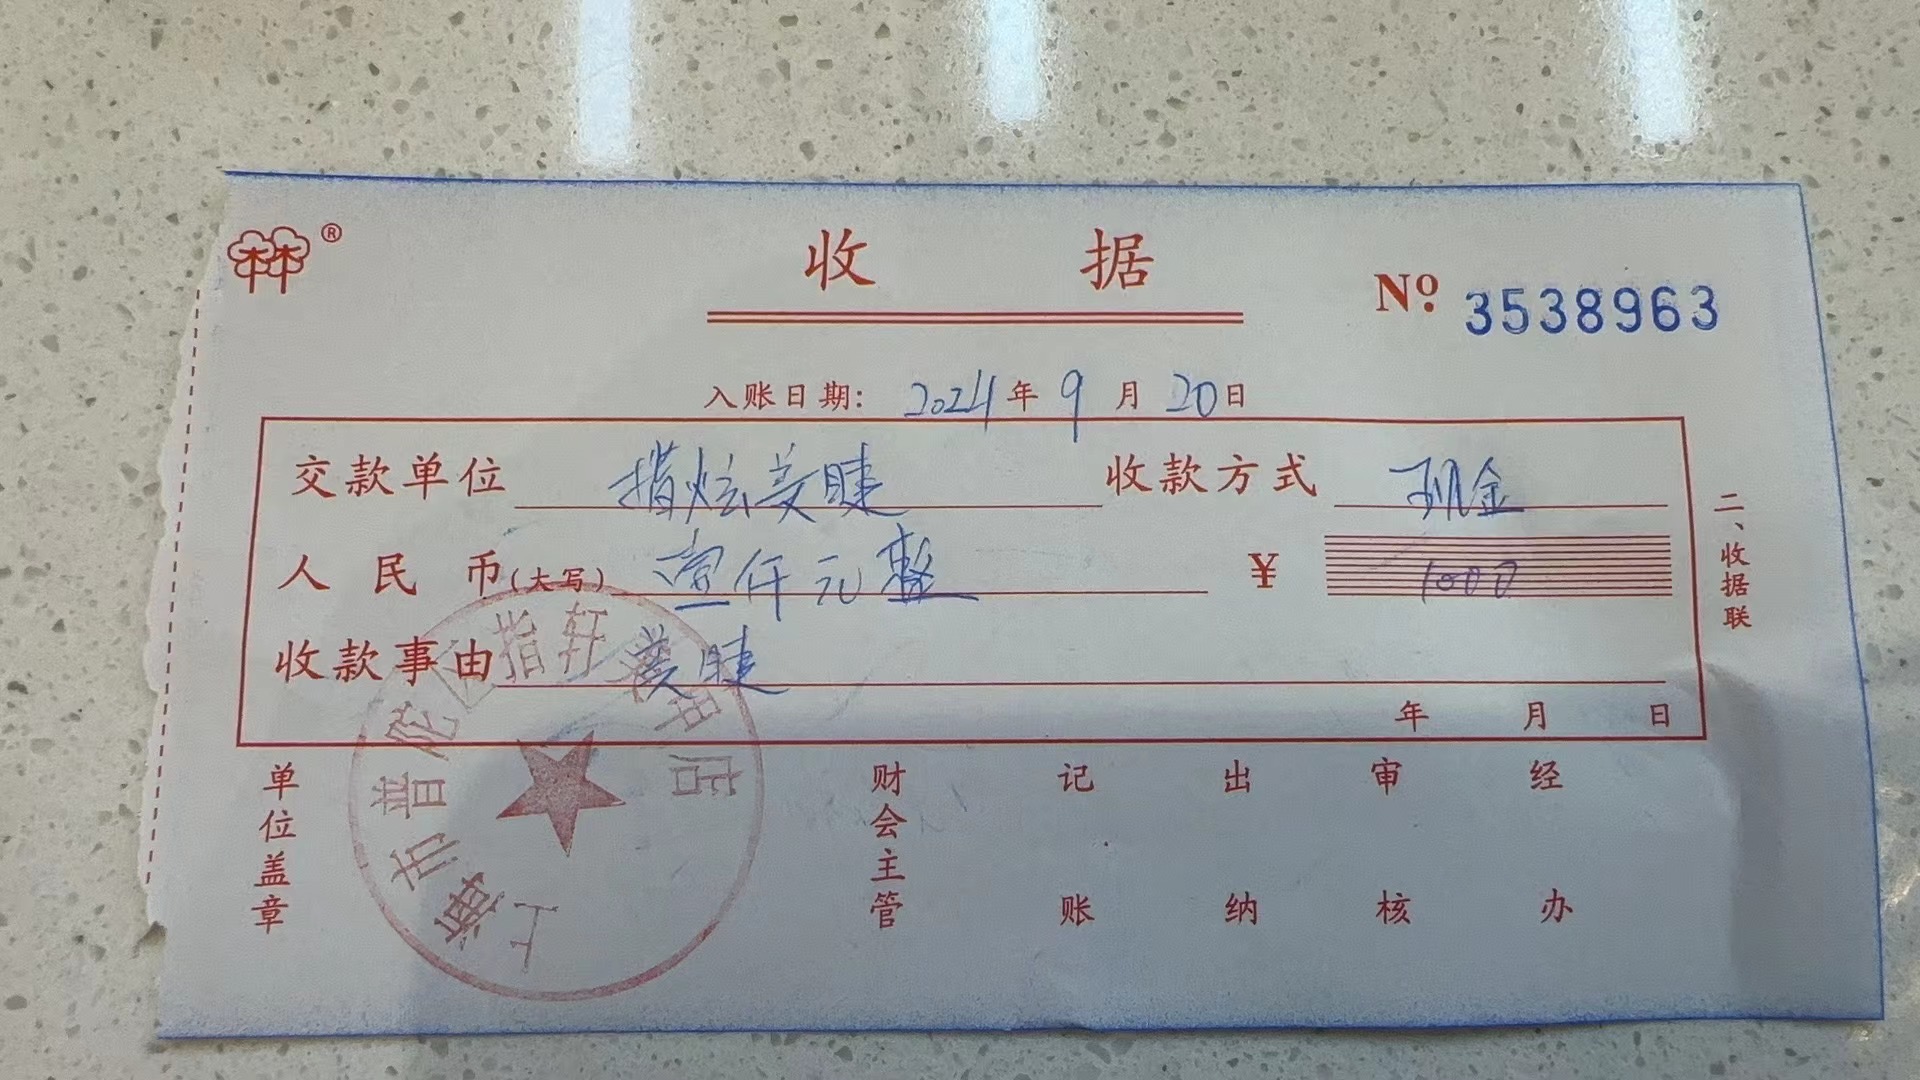 收 据
№ 3538963
入账日期: 2024年9月20日
交款单位 指炫美睫 收款方式 现金
人民币(大写) 壹仟元整 ¥ 1000
收款事由 美睫
年 月 日
二、收据联
单位盖章 财会主管 记账 出纳 审核 经办
上海市普陀区指轩美甲店